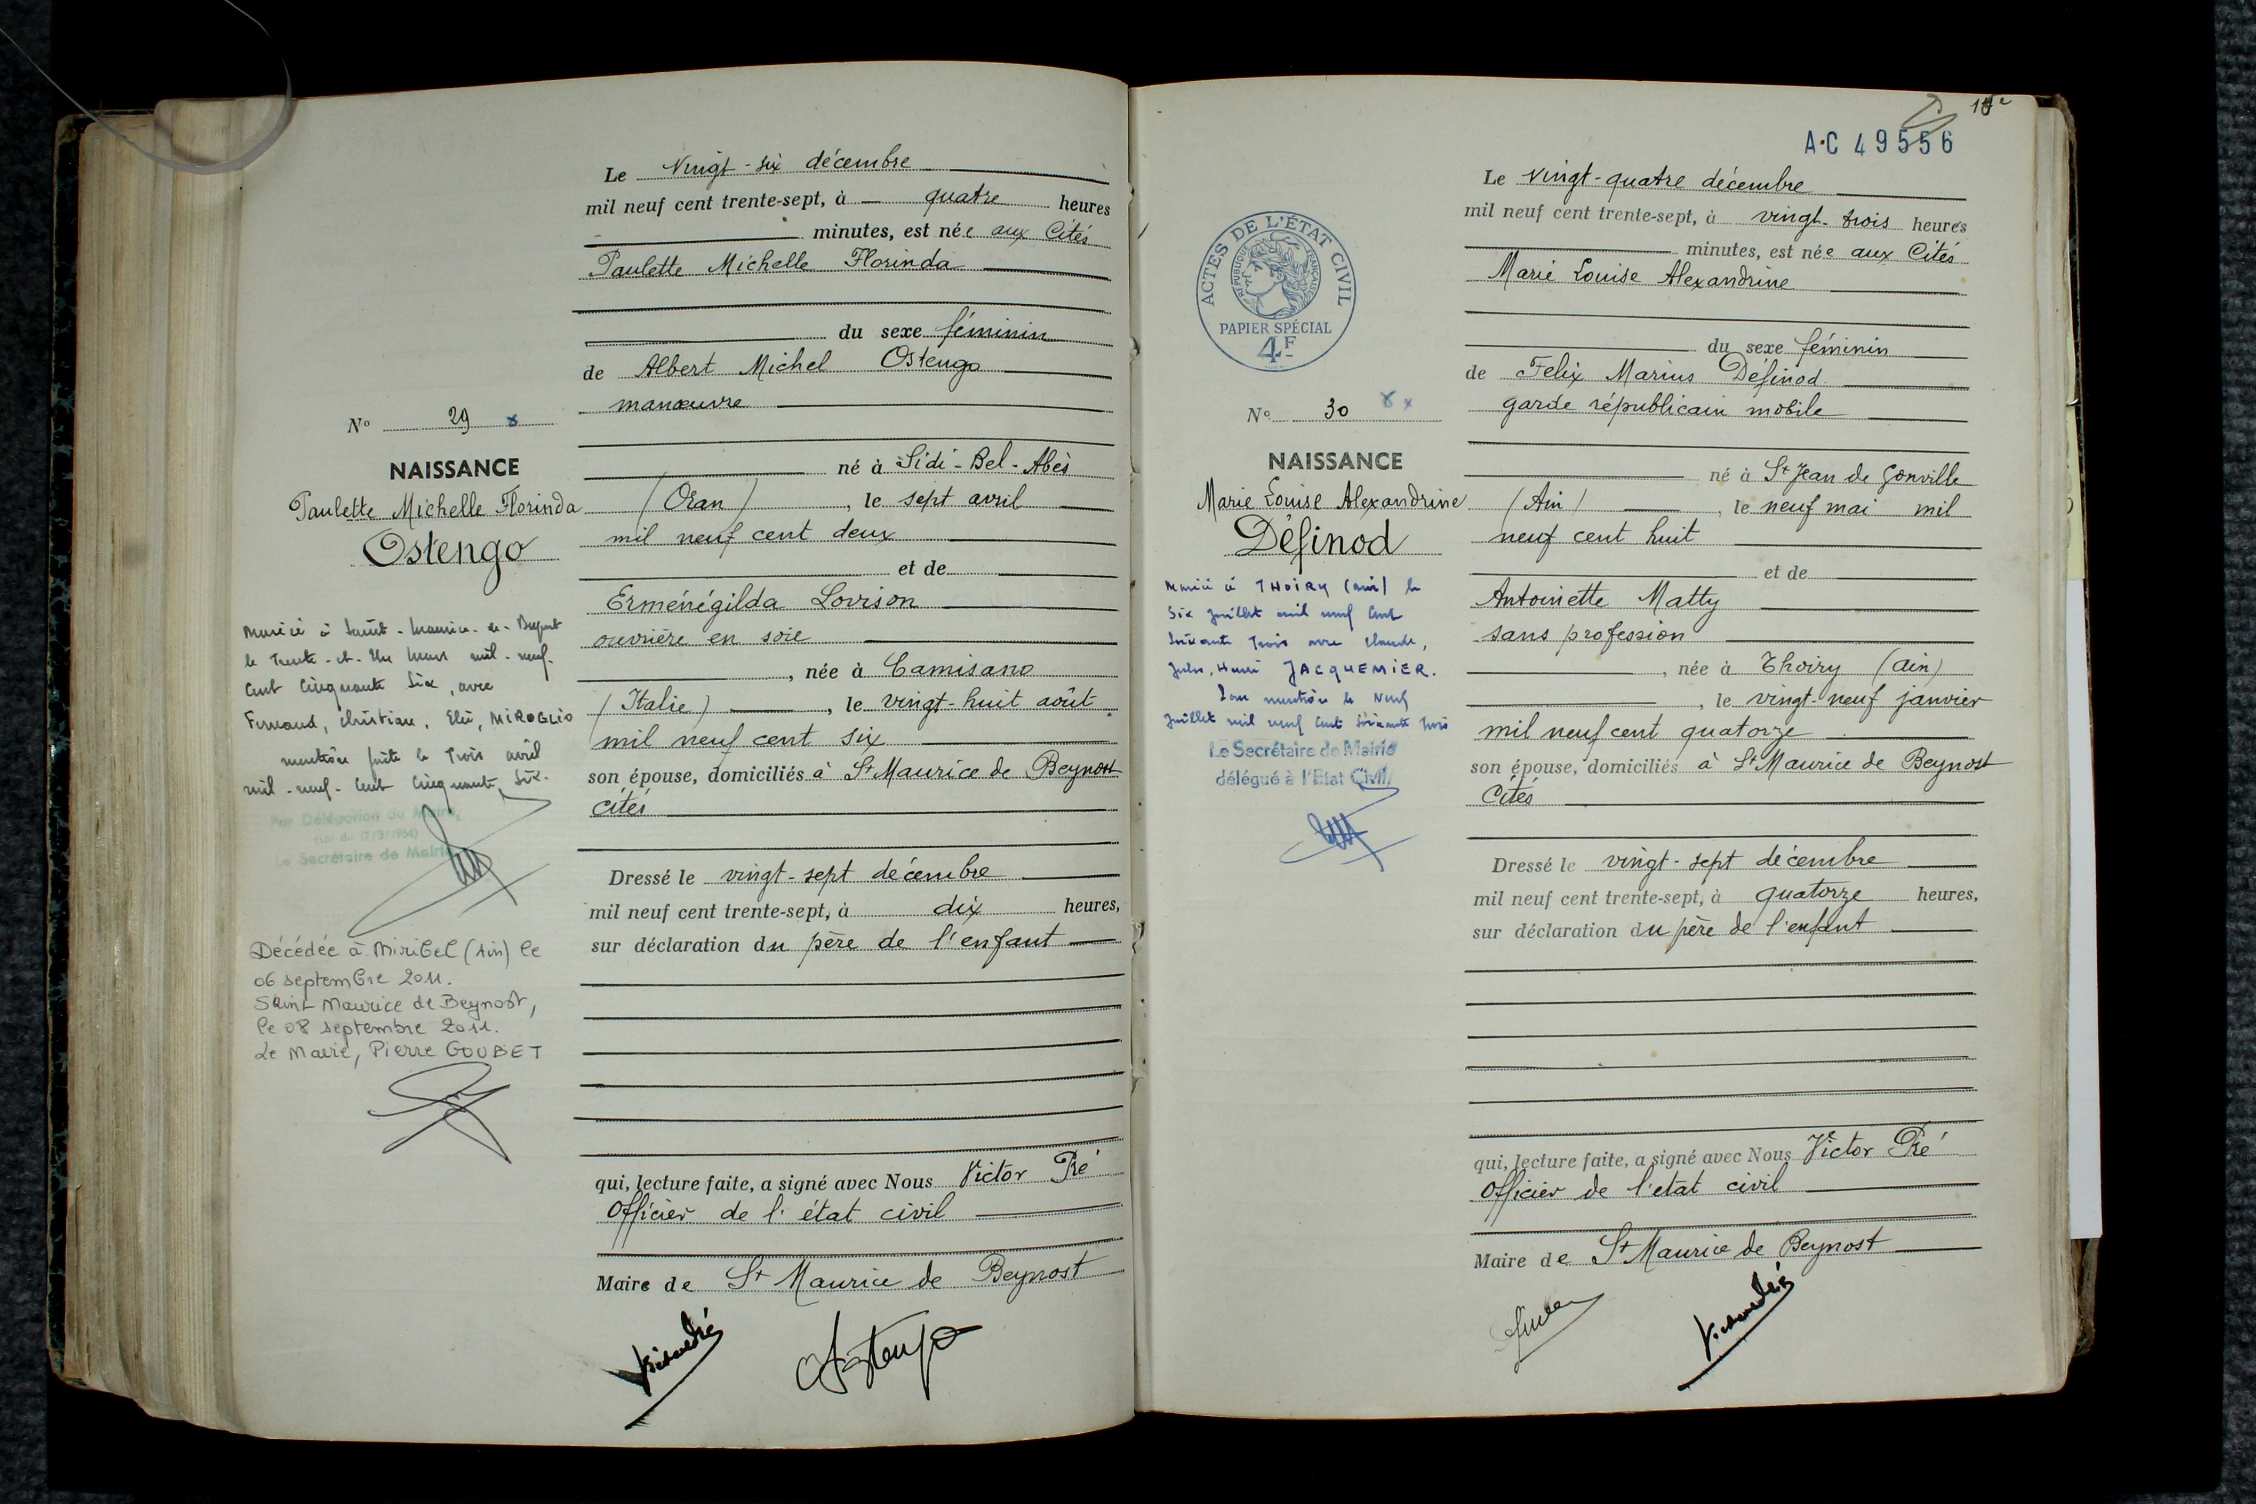 Le Vingt-six décembre
mil neuf cent trente-sept, à quatre heures
minutes, est née aux Cités
Paulette Michelle Florinda
du sexe féminin
de Albert Michel Ostengo
manœuvre
né à Sidi-Bel-Abès
(Oran), le sept avril
mil neuf cent deux
et de
Erménégilda Lovison
ouvrière en soie
, née à Camisano
(Italie), le vingt-huit août
mil neuf cent six
son épouse, domiciliés à St Maurice de Beynost
cités
Dressé le vingt-sept décembre
mil neuf cent trente-sept, à dix heures,
sur déclaration du père de l'enfant
qui, lecture faite, a signé avec Nous Victor Pré
Officier de l'état civil
Maire de St Maurice de Beynost
Ostengo
No 29
NAISSANCE
Paulette Michelle Florinda
Ostengo
Mariée à Saint-Maurice-de-Beynost
le Trente-et-Un Mars mil-neuf-
Cent Cinquante Six, avec
Fernand, Christian, MIROGLIO
mention faite le Trois avril
mil-neuf-Cent Cinquante Six.
Par Délégation du Maire,
Le Secrétaire de Mairie
Décédée à Miribel (Ain) le
06 septembre 2011.
Saint Maurice de Beynost,
le 08 septembre 2011.
Le Maire, Pierre GOUBET
A.C 49556
Le vingt-quatre décembre
mil neuf cent trente-sept, à vingt-trois heures
minutes, est née aux Cités
Marie Louise Alexandrine
du sexe féminin
de Felix Marius Définod
garde républicain mobile
né à St Jean de Gonville
(Ain), le neuf mai mil
neuf cent huit
et de
Antoinette Matty
sans profession
, née à Thoiry (Ain)
, le vingt-neuf janvier
mil neuf cent quatorze
son épouse, domiciliés à St Maurice de Beynost
Cités
Dressé le vingt-sept décembre
mil neuf cent trente-sept, à quatorze heures,
sur déclaration du père de l'enfant
qui, lecture faite, a signé avec Nous Victor Pré
Officier de l'etat civil
Maire de St Maurice de Beynost
ACTES DE L'ÉTAT CIVIL
RÉPUBLIQUE FRANÇAISE
PAPIER SPÉCIAL
4F
No 30
NAISSANCE
Marie Louise Alexandrine
Définod
Mariée à THOIRY (Ain) le
Six Juillet mil neuf Cent
Soixante Trois avec Claude,
Jules, Henri JACQUEMIER.
mention le Neuf
Juillet mil neuf Cent Soixante Trois
Le Secrétaire de Mairie
délégué à l'Etat Civil